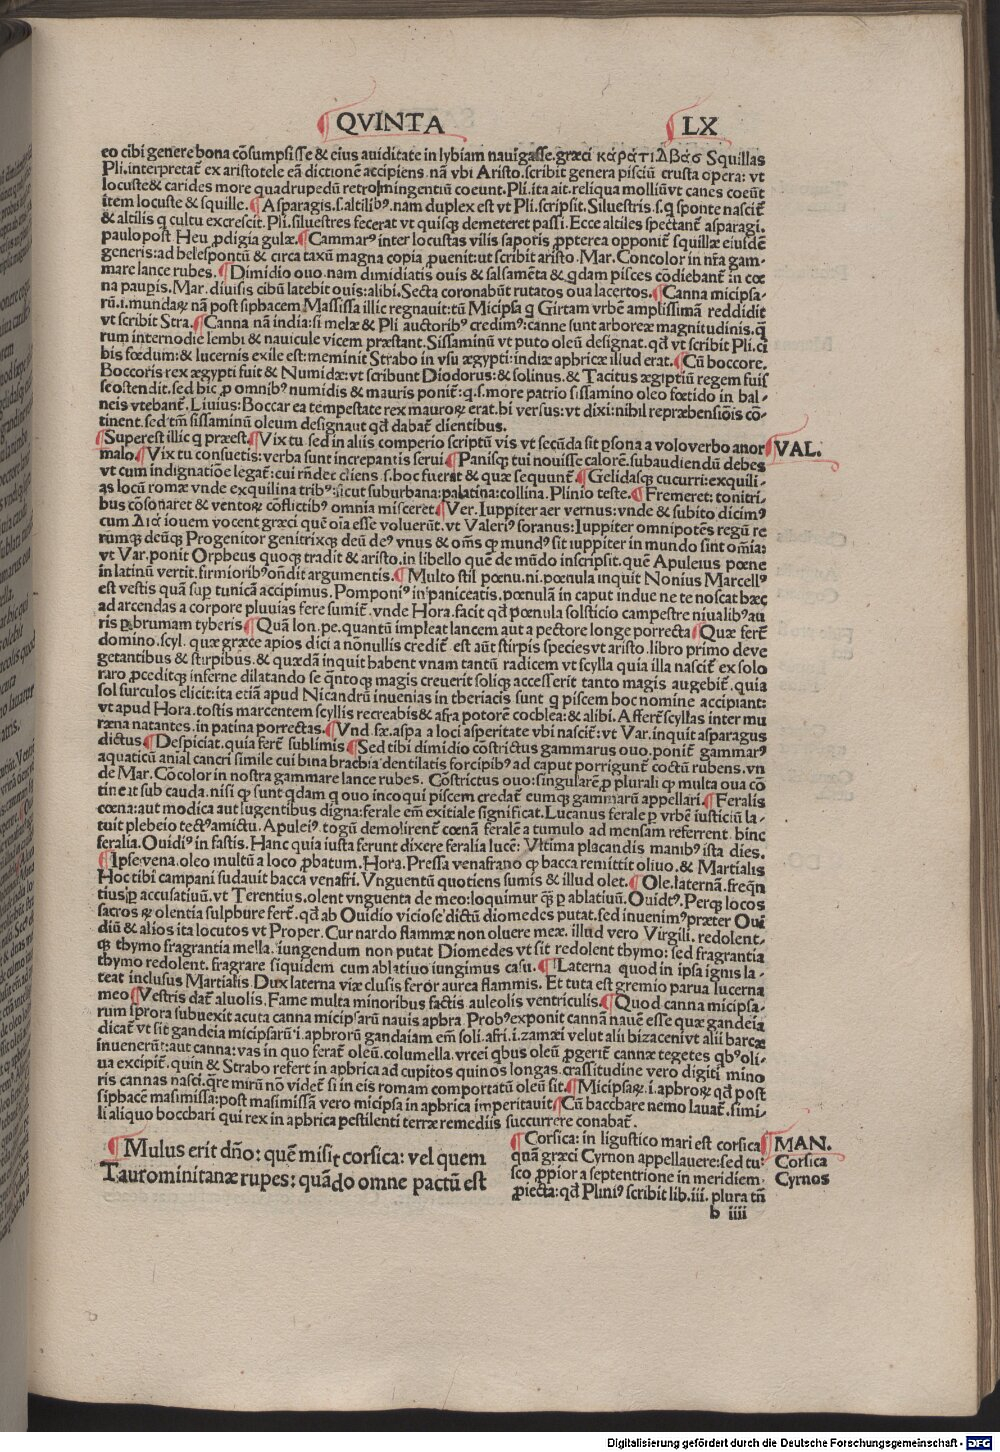 QVINTA LX
eo cibi genere bona cōsumpsisse & eius auiditate in lybiam nauigasse. græci καρατιΔβασ Squillas
Pli. interpretat̄ ex aristotele eā dictionē accipiens. nā vbi Aristo. scribit genera pisciū crusta opera: vt
locuste & carides more quadrupedū retromingentiū coeunt. Pli. ita ait. reliqua molliū vt canes coeūt
item locuste & squille. ¶Asparagis. s. altilibꝰ. nam duplex est vt Pli. scripsit. Siluestris. s. q sponte nascit̄
& altilis q cultu excrescit. Pli. siluestres fecerat vt quisq; demeteret passi. Ecce altiles spectant̄ asparagi.
paulo post Heu ꝓdigia gulæ. ¶Cammarꝰ inter locustas vilis saporis ꝓpterea opponit̄ squillæ eiusdē
generis: ad helespontū & circa taxū magna copia ꝓuenit: ut scribit aristo. Mar. Concolor in nr̄a gam-
mare lance rubes. ¶Dimidio ouo. nam dimidiatis ouis & salsamēta & qdam pisces cōdiebant̄ in cœ
na paupis. Mar. diuisis cibū latebit ouis: alibi. Secta coronabūt rutatos oua lacertos. ¶Canna micipsa-
rū. i. mundaꝝ nā post siphacem Massissa illic regnauit: tū Micipsa q Girtam vrbē amplissimā reddidit
vt scribit Stra. ¶Canna nā india: si melæ & Pli auctoribꝰ credimꝰ: canne sunt arboreæ magnitudinis. q̄
rum internodie lembi & nauicule vicem præstant. Sissaminū vt puto oleū designat. qd̄ vt scribit Pli. ci
bis fœdum: & lucernis exile est: meminit Strabo in vsu ægypti: indiæ aphricæ illud erat. ¶Cū boccore.
Boccoris rex ægypti fuit & Numidæ: vt scribunt Diodorus: & solinus. & Tacitus ægiptiū regem fuis
se ostendit. sed hic ꝓ omnibꝰ numidis & mauris ponit̄: q. s. more patrio sissamino oleo fœtido in bal-
neis vtebant̄. Liuius: Boccar ea tempestate rex mauroꝝ erat. hi versus: vt dixi: nihil repræhensiōis cō-
tinent. sed tm̄ sissaminū oleum designaut qd̄ dabat̄ clientibus.
¶Superest illic q præest. ¶Vix tu sed in aliis comperio scriptū vis vt secūda sit ꝑsona a volo verbo anor ¶VAL.
malo. ¶Vix tu consuetis: verba sunt increpantis serui ¶Panisq; tui nouisse calorē. subaudiendū debes
vt cum indignatiōe legat̄: cui rn̄dec cliens. s. hoc fuerat & quæ sequunt̄ ¶Gelidasq; cucurri: exquili-
as locū romæ vnde exquilina tribꝰ: sicut suburbana: palatina: collina. Plinio teste. ¶Fremeret: tonitri-
bus cōsonaret & ventoꝝ cōflictibꝰ omnia misceret ¶Ver. Iuppiter aer vernus: vnde & subito dicimꝰ
cum Δια iouem vocent græci quē oīa esse voluerūt. vt Valeriꝰ soranus: Iuppiter omnipotēs regū re
rūmq; deūq; Progenitor genitrixq; deū deꝰ vnus & om̄s qꝫ mundꝰ sit iuppiter in mundo sint om̄ia:
vt Var. ponit Orpheus quoq; tradit & aristo. in libello quē de mūdo inscripsit. quē Apuleius pœne
in latinū vertit. firmioribꝰ on̄dit argumentis. ¶Multo stil pœnu. ni. pœnula inquit Nonius Marcellꝰ
est vestis quā sup tunicā accipimus. Pomponiꝰ in paniceatis. pœnulā in caput indue ne te noscat hæc
ad arcendas a corpore pluuias fere sumit̄. vnde Hora. facit qd̄ pœnula solsticio campestre niualibꝰ au
ris ꝑ brumam tyberis ¶Quā lon. pe. quantū impleat lancem aut a pectore longe porrecta ¶Quæ fert̄
domino. scyl. quæ græce apios dici a nōnullis credit̄ est aūt stirpis species vt aristo. libro primo de ve
getantibus & stirpibus. & quædā inquit habent vnam tantū radicem vt scylla quia illa nascit̄ ex solo
raro ꝓceditq; inferne dilatando se q̄ntoq; magis creuerit soliq; accesserit tanto magis augebit̄. quia
sol surculos elicit: ita etiā apud Nicandrū inuenias in theriacis sunt q piscem hoc nomine accipiant:
vt apud Hora. tostis marcentem scyllis recreabis & afra potorē cochlea: & alibi. Affert̄ scyllas inter mu
ræna natantes. in patina porrectas. ¶Vnd. fæ. aspa a loci asperitate vbi nascit̄: vt Var. inquit asparagus
dictus ¶Despiciat. quia fert̄ sublimis ¶Sed tibi dimidio cōstrictus gammarus ouo. ponit̄ gammarꝰ
aquaticū anial cancri simile cui bina brachia dentilatis forcipibꝰ ad caput porrigunt̄ coctū rubens. vn
de Mar. Cōcolor in nostra gammare lance rubes. Cōstrictus ouo: singularē ꝓ plurali qꝫ multa oua cō
tineit sub cauda. nisi qꝫ sunt qdam q ouo incoqui piscem credat̄ eumq; gammarū appellari. ¶Feralis
cœna: aut modica aut lugentibus digna: ferale em̄ exitiale significat. Lucanus ferale ꝑ vrbē iusticiū la-
tuit plebeio tectꝰ amictu. Apuleiꝰ. togū demolirent̄ cœnā feralē a tumulo ad mensam referrent. hinc
feralia. Ouidiꝰ in fastis. Hanc quia iusta ferunt dixere feralia lucē: Vltima placandis manibꝰ ista dies.
¶Ipse vena. oleo multū a loco ꝓbatum. Hora. Pressa venafrano qꝫ bacca remittit oliuo. & Martialis
Hoc tibi campani sudauit bacca venafri. Vnguentū quotiens sumis & illud olet. ¶Ole. laternā. freqn̄
tius ꝑ accusatiuū. vt Terentius. olent vnguenta de meo: loquimur q̄ꝫ ꝑ ablatiuū. Ouidꝰ. Perq; locos
sacros & olentia sulphure fert̄. qd̄ ab Ouidio viciose dictū diomedes putat. sed inuenimꝰ præter Oui
diū & alios ita locutos vt Proper. Cur nardo flammæ non oluere meæ. illud vero Virgili. redolent-
q; thymo fragrantia mella. iungendum non putat Diomedes vt sit redolent thymo: sed fragrantia
thymo redolent. fragrare siquidem cum ablatiuo iungimus casu. ¶Laterna quod in ipsa ignis la-
teat inclusus Martialis. Dux laterna viæ clusis feror aurea flammis. Et tuta est gremio parua lucerna
meo ¶Vestris dat̄ aluolis. Fame multa minoribus factis auleolis ventriculis. ¶Quod canna micipsa-
rum ī prora subuexit acuta canna micipsarū nauis aphra. Probꝰ exponit cannā nauē esse quæ gandeia
dicat̄ vt sit gandeia micipsarū i aphrorū gandaiam em̄ soli. afri. i. zamæi velut alii bizaceni vt alii barcæ
inuenerūt: aut canna: vas in quo ferat̄ oleū. columella. vrcei qbus oleū ꝓgerit̄ cannæ tegetes qbꝰ oli-
ua excipit̄. quin & Strabo refert in aphrica ad cupitos quinos longas. crassitudine vero digiti mino
ris cannas nasci. q̄re mirū nō videt̄ si in eis romam comportatū oleū sit. ¶Micipsaꝝ. i. aphroꝝ qd̄ post
siphacem masimissa: post masimissā vero micipsa in aphrica imperitauit ¶Cū bacchare nemo lauat̄. simi-
li aliquo bocchari qui rex in aphrica pestilenti terræ remediis succurrere conabat̄.
¶Mulus erit dn̄o: quē misit corsica: vel quem
Taurominitanæ rupes: quādo omne pactū est
¶Corsica: in ligustico mari est corsica ¶MAN.
quā græci Cyrnon appellauere: sed tu- Corsica
sco ꝓpior a septentrione in meridiem Cyrnos
ꝓiecta: qd̄ Pliniꝰ scribit lib. iii. plura tn̄
h iiii
Digitalisierung gefördert durch die Deutsche Forschungsgemeinschaft - DFG